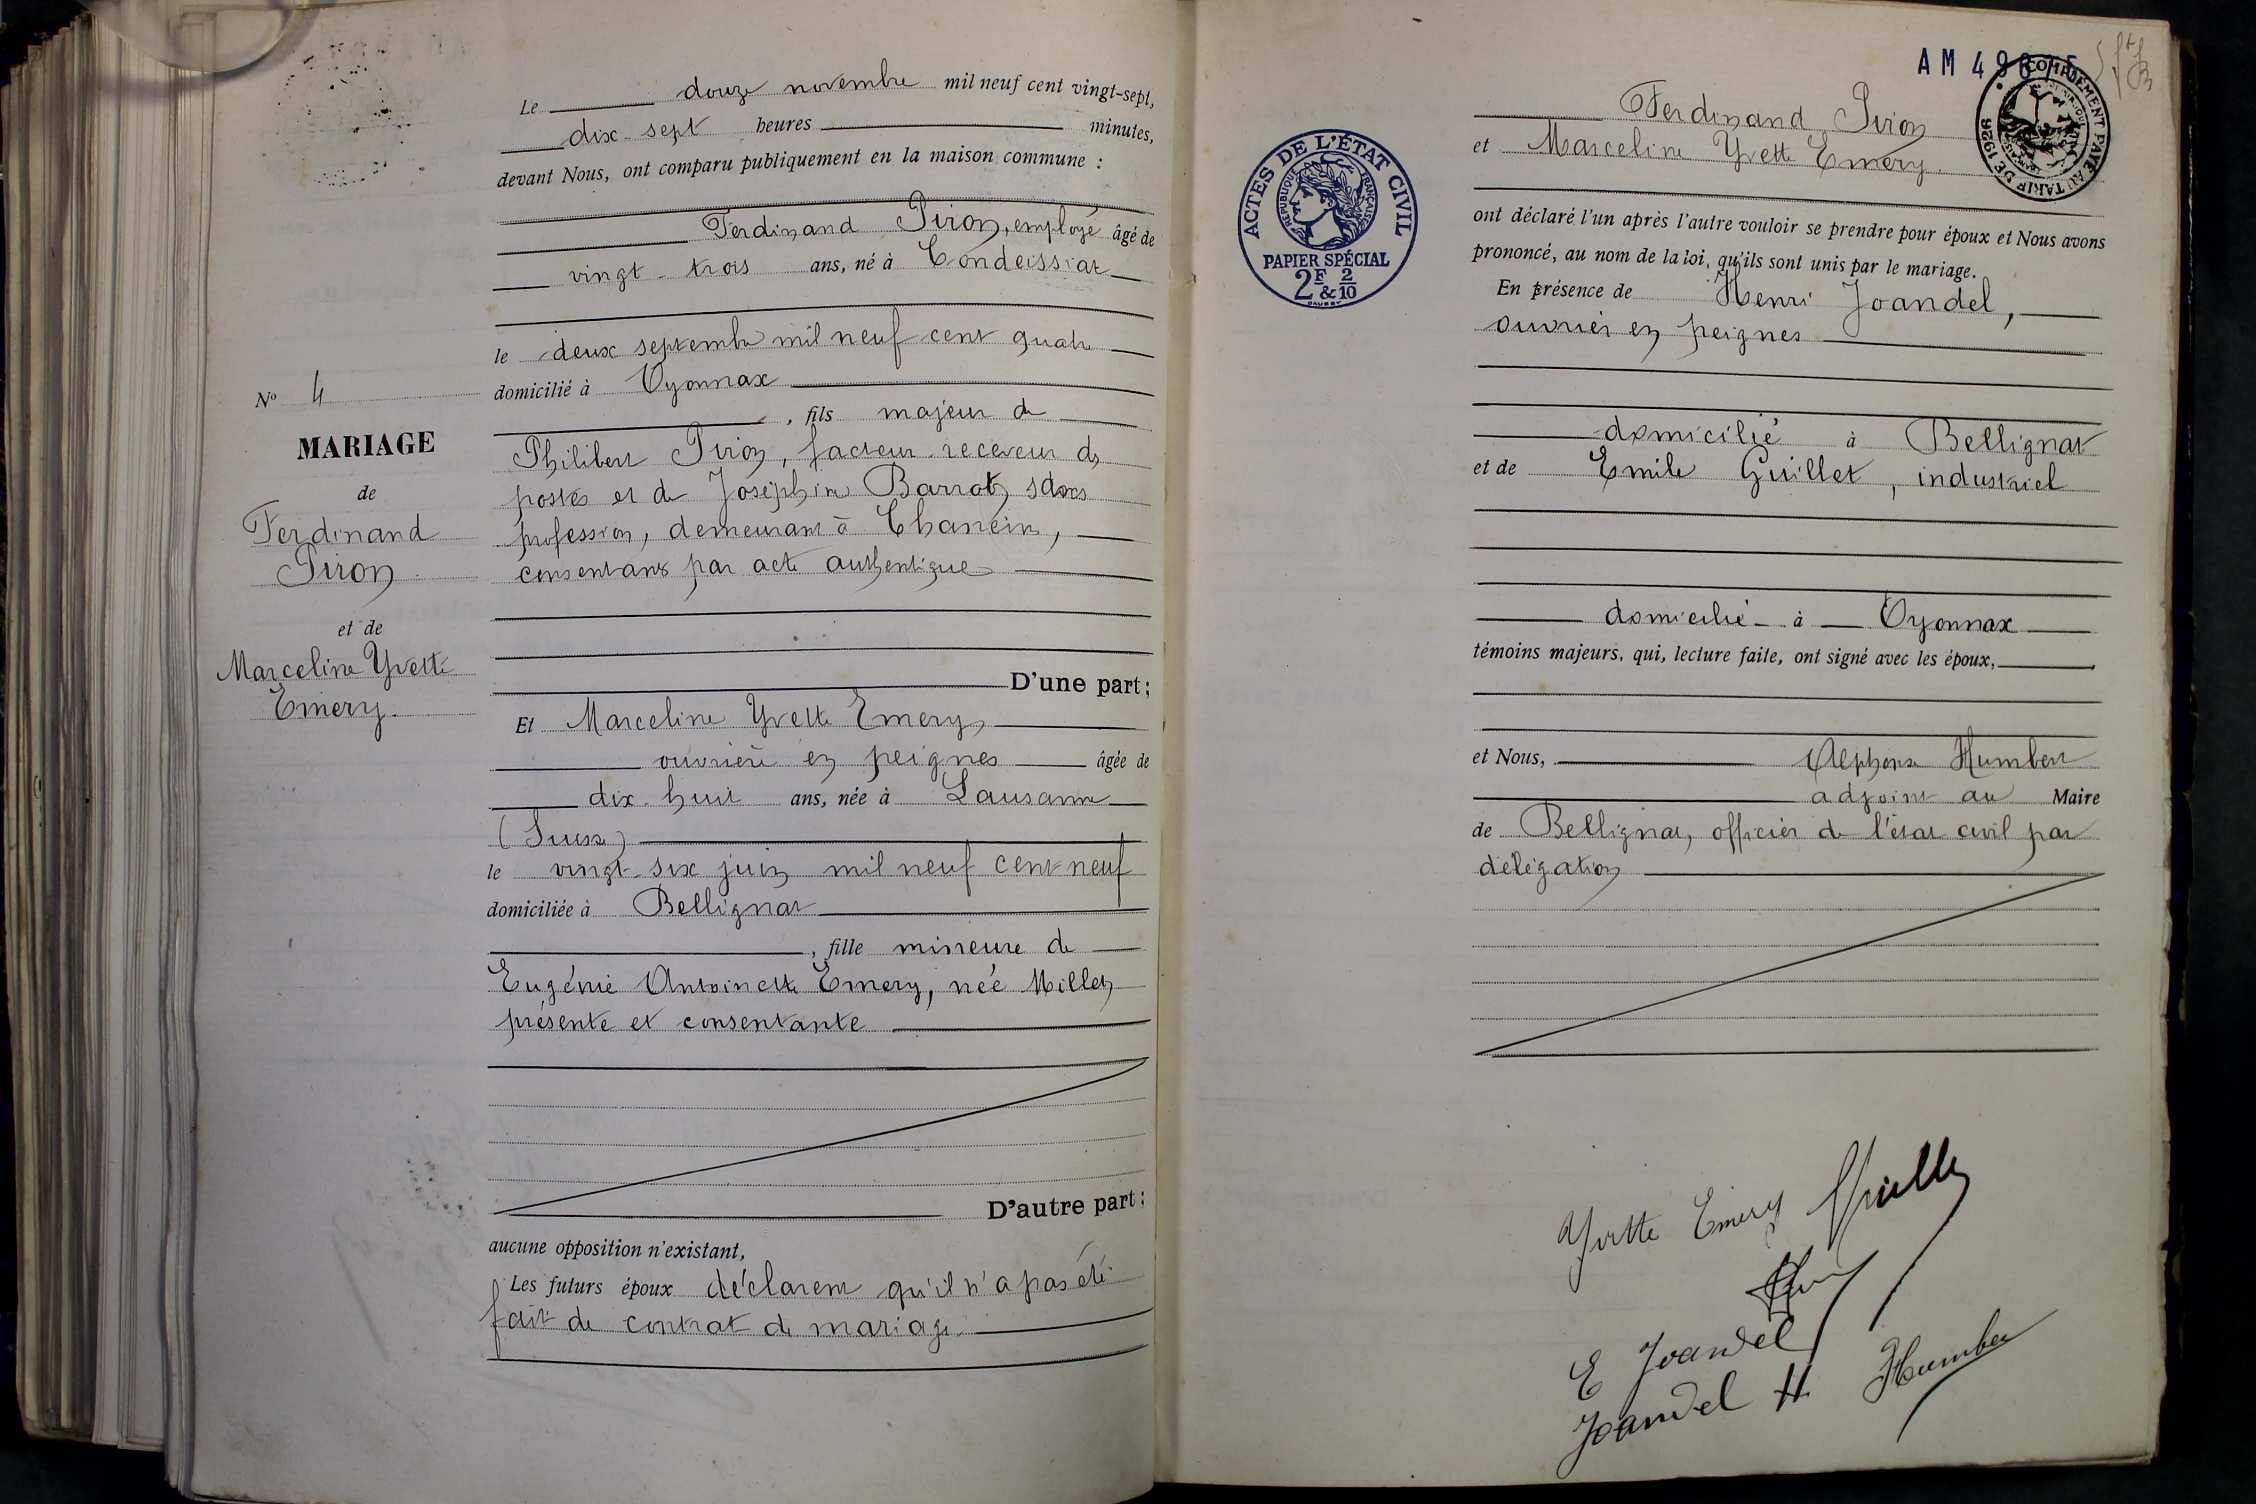 Le douze novembre mil neuf cent vingt-sept,
dix-sept heures minutes,
devant Nous, ont comparu publiquement en la maison commune :
Ferdinand Piron, employé âgé de
vingt-trois ans, né à Condeissiat
le deux septembre mil neuf cent quatre
domicilié à Oyonnax
, fils majeur de
Philibert Piron, facteur-receveur des
postes et de Joséphine Barrot, sans
profession, demeurant à Chaneins,
consentants par acte authentique
D'une part ;
Et Marceline Yvette Emery,
ouvrière en peignes âgée de
dix-huit ans, née à Lausanne
(Suisse)
le vingt-six juin mil neuf cent neuf
domiciliée à Bellignat
, fille mineure de
Eugénie Antoinette Emery, née Millet,
présente et consentante
D'autre part :
aucune opposition n'existant,
Les futurs époux déclarent qu'il n'a pas été
fait de contrat de mariage.
No 4
MARIAGE
de
Ferdinand
Piron
et de
Marceline Yvette
Emery.
AM
COMPLÉMENT PAYÉ AU TARIF DE 1926
ACTES DE L'ÉTAT CIVIL
RÉPUBLIQUE FRANÇAISE
PAPIER SPÉCIAL
2F & 2/10
Ferdinand Piron
et Marceline Yvette Emery.
ont déclaré l'un après l'autre vouloir se prendre pour époux et Nous avons
prononcé, au nom de la loi, qu'ils sont unis par le mariage.
En présence de Henri Joandel,
ouvrier en peignes
domicilié à Bellignat
et de Emile Guillet, industriel
domicilié à Oyonnax
témoins majeurs, qui, lecture faite, ont signé avec les époux,
et Nous, Alphonse Humbert
adjoint au Maire
de Bellignat, officier de l'état civil par
délégation
Yvette Emery
E Joandel
Joandel H Humbert